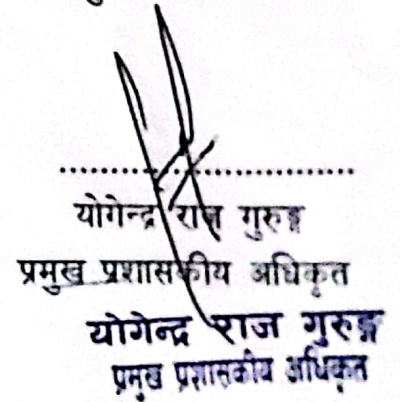 ..............................
योगेन्द्र राज गुरुङ्ग
प्रमुख प्रशासकीय अधिकृत
योगेन्द्र राज गुरुङ्ग
प्रमुख प्रशासकीय अधिकृत